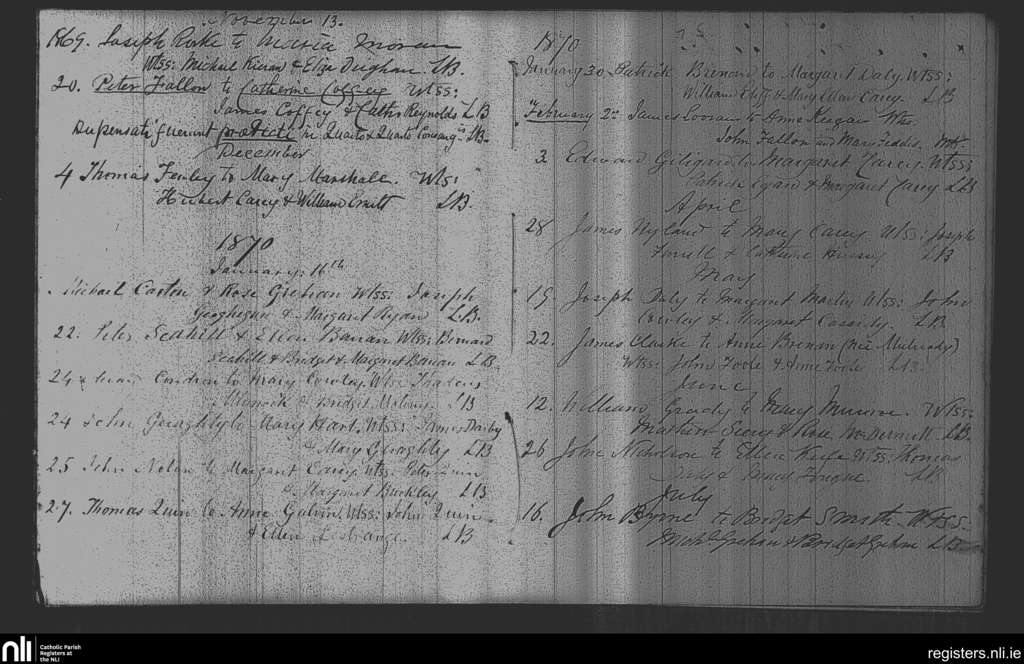 November 13.
1869. Joseph Rorke to Maria Moran
Wtss: Michael Kieran & Eliza Dughan LB.
20. Peter Fallon to Catherine Coffey Wtss:
James Coffey & Cath Reynolds LB
in Quarto & Quarto Consang. LB.
December
4 Thomas Fenley to Mary Marshall. Wts:
Hubert Carey & William LB.
1870
January: 16th
Michael Caston & Rose Wtss: Joseph
Geoghegan & Margaret Ryan LB.
22. Peter Scahill & Ellen Banan Wtss: Bernard
Scahill & Bridget & Margaret Banan LB
24 Condron to Mary Cowley Wtss Thadeus
& Bridget LB
24 John Geraghty to Mary Hart. Wtss: James Darby
& Mary Geraghty LB
25 John Nolan to Margaret Carey Wtss Peter
& Margaret Buckley LB
27. Thomas Quin to Anne Galvin. Wtss: John Quin
& Ellen Lestrange. LB
1870
January 30 Patrick Brenan to Margaret Daly Wtss:
William & Mary Ellen Carey. LB
February 2nd James to Anne Keegan Wtss.
John Fallon and Mary Feddis.
3 Edward to Margaret Wtss:
Patrick Egan & Margaret LB
April
28 James Hyland to Mary Carey Wtss: Joseph
& Catherine LB
May
19 Joseph Daly to Margaret Martin Wtss: John
Cowley & Margaret Cassidy. LB
22. James Clarke to Anne Brenan (née Mulready)
Wtss: John Toole & Anne Toole LB.
June
12. William Grady to Mary Munroe. Wtss:
Mathew & Rose McDermott LB.
26 John Nicholson to Ellen Keefe Wtss: Thomas
Daly & LB
July
16. John Byrne to Bridget Smith. Wtss.
Michl Grehan & Bridget Grehan LB
nli
Catholic Parish
Registers at
the NLI
registers.nli.ie